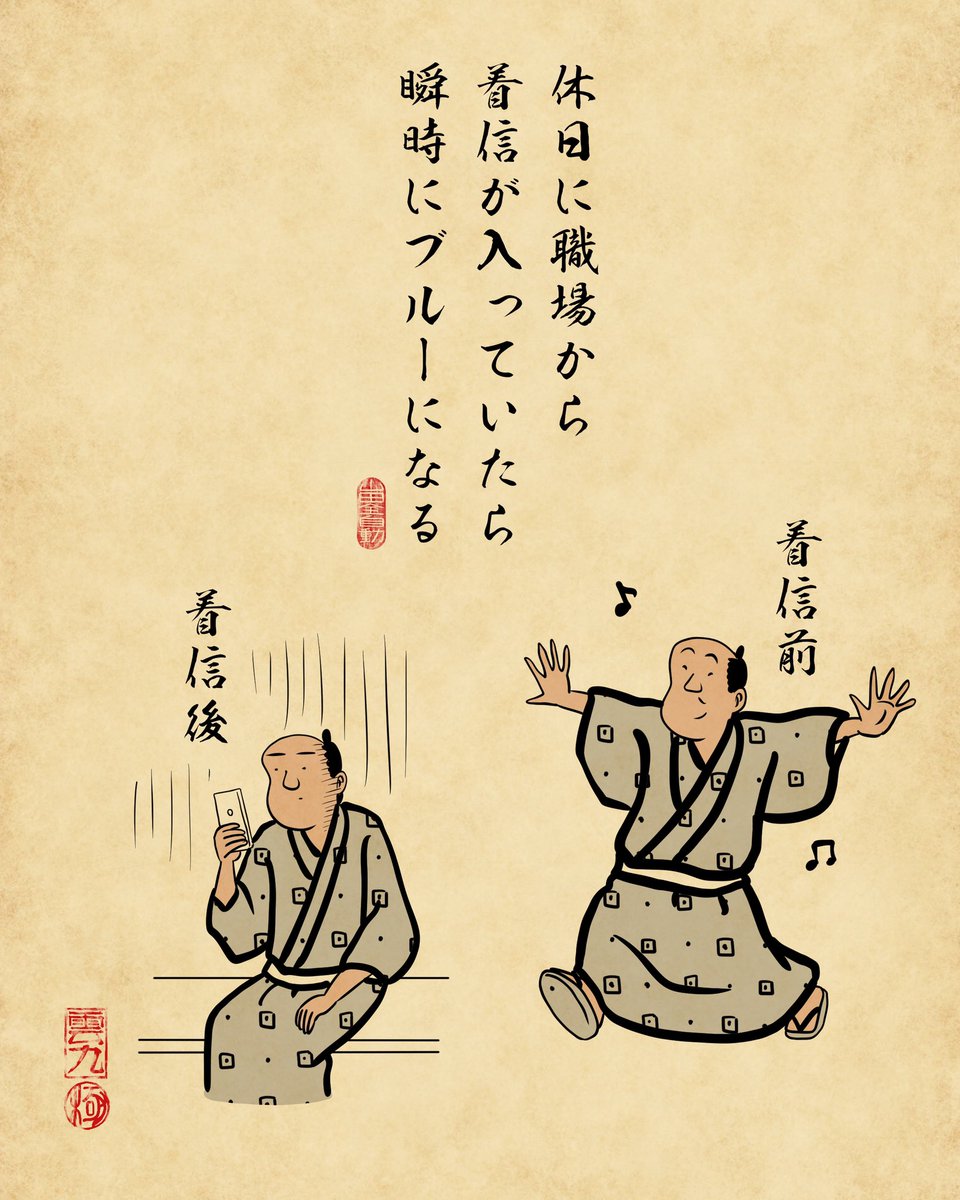 休日に職場から
着信が入っていたら
瞬時にブルーになる
着信前
着信後